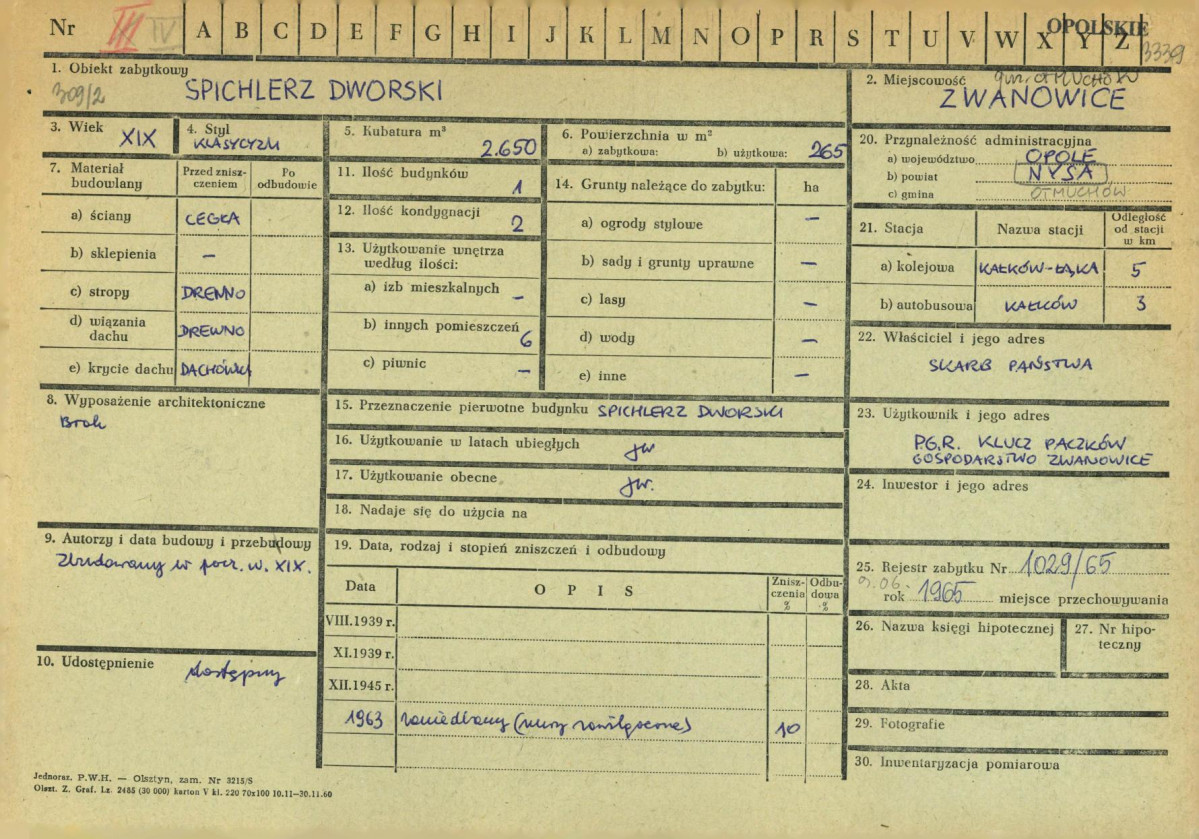 Nr III IV A B C D E F G H I J K L M N O P R S T U V W X Y Z OPOLSKIE
3339
1. Obiekt zabytkowy
309/2 SPICHLERZ DWORSKI
2. Miejscowość gm. OTMUCHÓW
ZWANOWICE
3. Wiek XIX
4. Styl
KLASYCYZM
5. Kubatura m³
2.650
6. Powierzchnia w m²
a) zabytkowa: b) użytkowa: 265
7. Materiał budowlany
Przed zniszczeniem
Po odbudowie
a) ściany CEGŁA
b) sklepienia —
c) stropy DREWNO
d) wiązania dachu DREWNO
e) krycie dachu DACHÓWKA
8. Wyposażenie architektoniczne
Brak
9. Autorzy i data budowy i przebudowy
Zbudowany w pocz. w. XIX.
10. Udostępnienie dostępny
11. Ilość budynków
1
12. Ilość kondygnacji
2
13. Użytkowanie wnętrza
według ilości:
a) izb mieszkalnych —
b) innych pomieszczeń 6
c) piwnic —
14. Grunty należące do zabytku: ha
a) ogrody stylowe —
b) sady i grunty uprawne —
c) lasy —
d) wody —
e) inne —
15. Przeznaczenie pierwotne budynku SPICHLERZ DWORSKI
16. Użytkowanie w latach ubiegłych jw
17. Użytkowanie obecne jw.
18. Nadaje się do użycia na
19. Data, rodzaj i stopień zniszczeń i odbudowy
Data OPIS Zniszczenia % Odbudowa %
VIII.1939 r.
XI.1939 r.
XII.1945 r.
1963 zaniedbany (mury zawilgocone) 10
20. Przynależność administracyjna
a) województwo OPOLE
b) powiat NYSA
c) gmina OTMUCHÓW
21. Stacja Nazwa stacji Odległość od stacji w km
a) kolejowa KAŁKÓW-ŁĄKA 5
b) autobusowa KAŁKÓW 3
22. Właściciel i jego adres
SKARB PAŃSTWA
23. Użytkownik i jego adres
P.G.R. KLUCZ PACZKÓW
GOSPODARSTWO ZWANOWICE
24. Inwestor i jego adres
25. Rejestr zabytku Nr 1029/65
9.06.
rok 1965 miejsce przechowywania
26. Nazwa księgi hipotecznej
27. Nr hipoteczny
28. Akta
29. Fotografie
30. Inwentaryzacja pomiarowa
Jednoraz. P.W.H. — Olsztyn, zam. Nr 3215/S
Olszt. Z. Graf. Lz. 2485 (30 000) karton V kl. 220 70x100 10.11—30.11.60